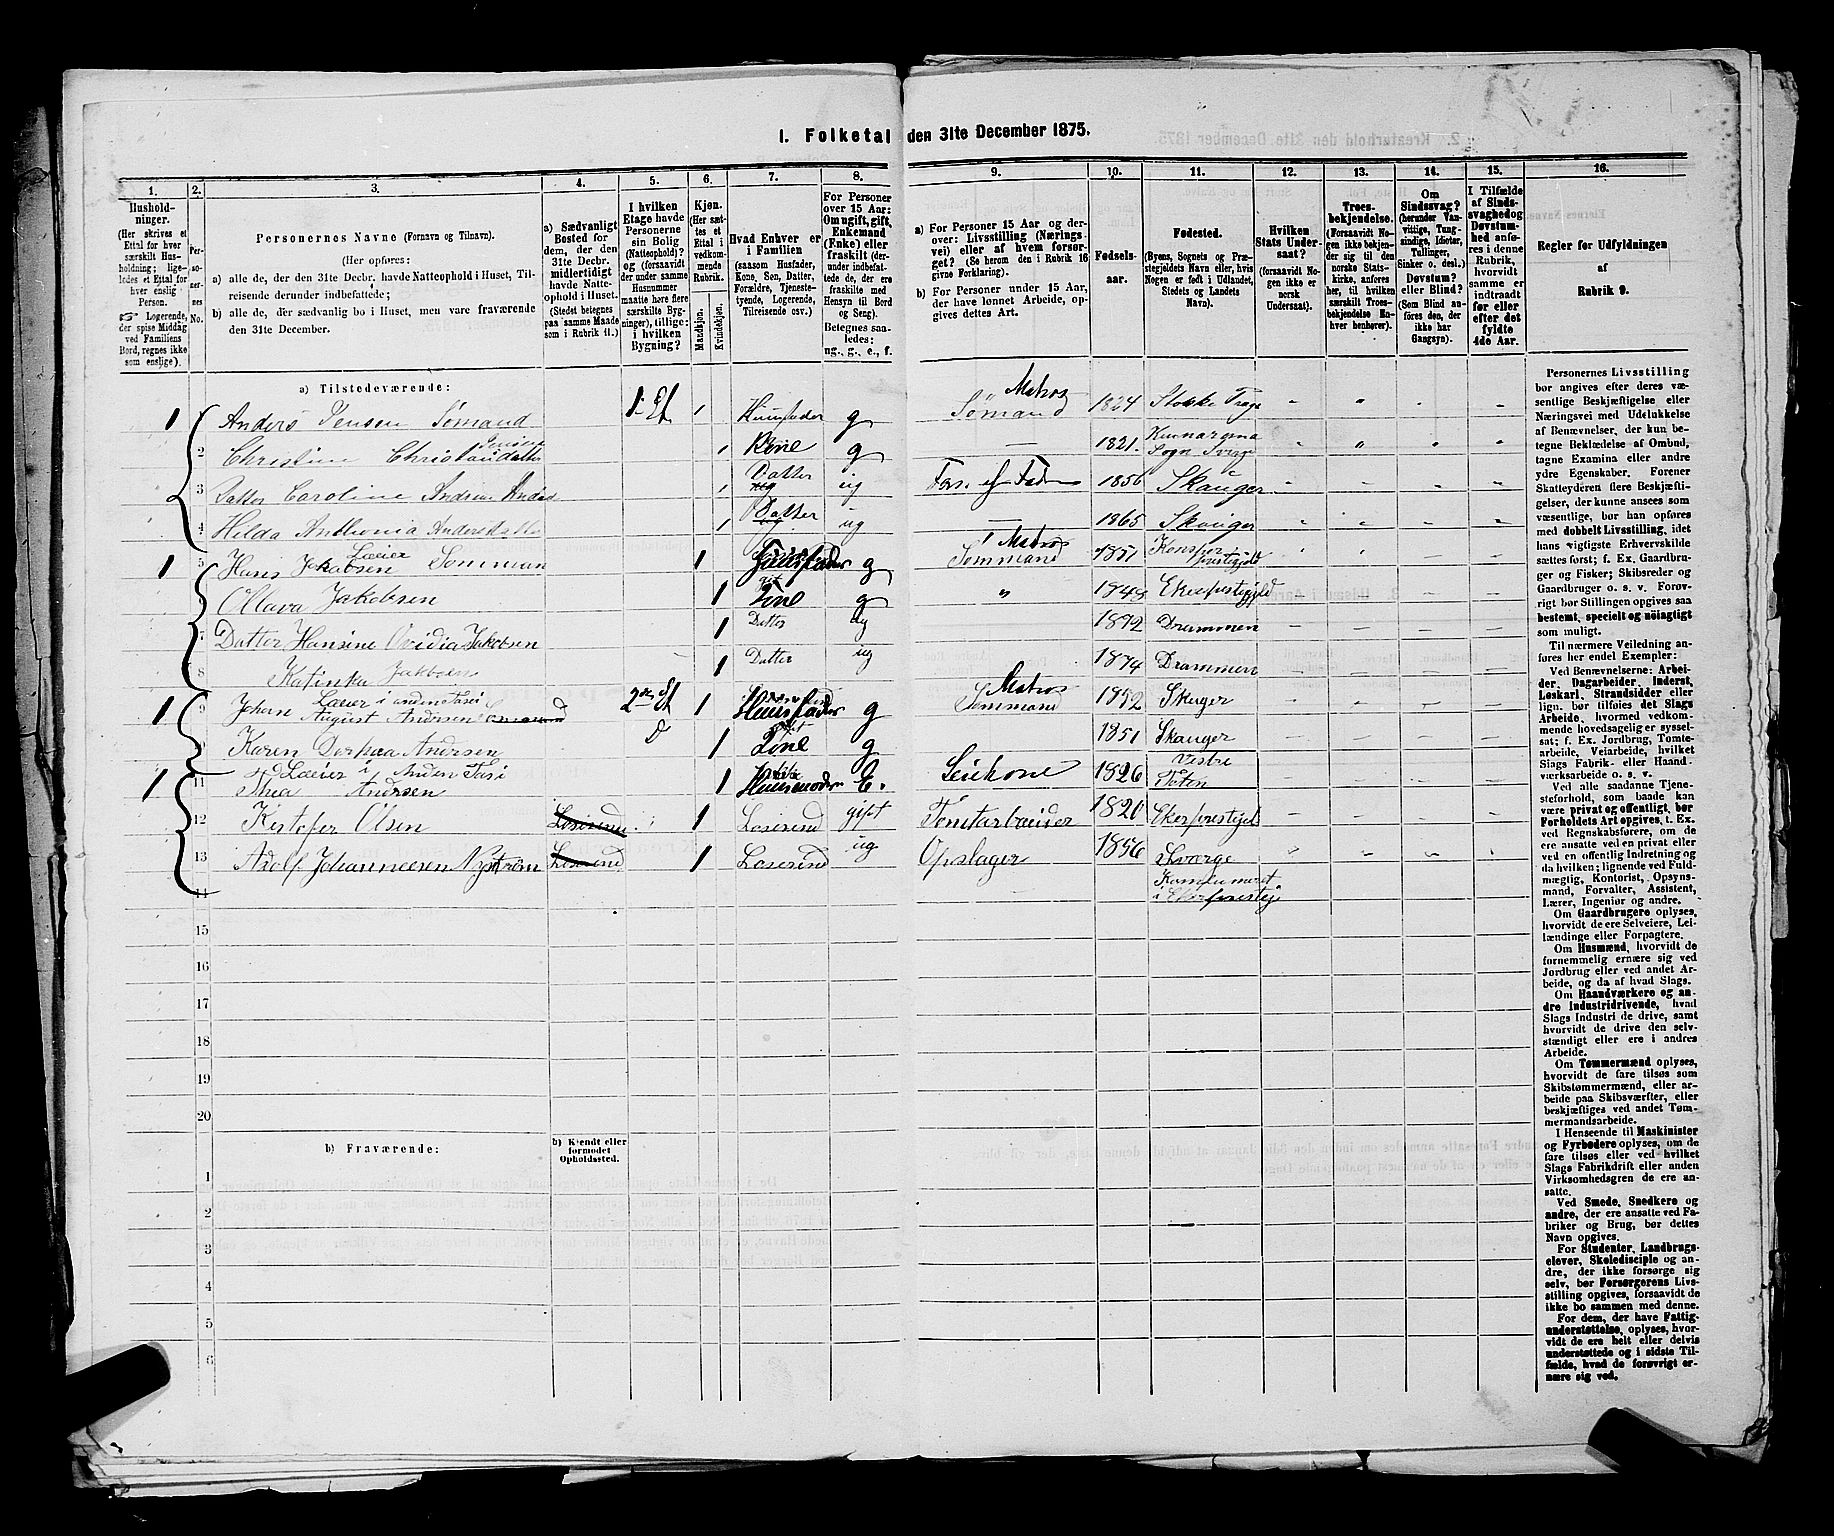 1. Folketal den 31te December 1875.
1.
Hushold-
ninger.
(Her skrives et
Ettal for hver
særskilt Hus-
holdning; lige-
ledes et Ettal for
hver enslig
Person.
Logerende,
der spise Middag
ved Familiens
Bord, regnes ikke
som enslige).
2.
Per-
so-
ner-
nes
No.
3.
Personernes Navne (Fornavn og Tilnavn).
(Her opføres:
a) alle de, der den 31te Decbr. havde Natteophold i Huset, Til-
reisende derunder indbefattede;
b) alle de, der sædvanlig bo i Huset, men vare fraværende
den 31te December.
4.
a) Sædvanligt
Bosted for
dem, der den
31te Decbr.
midlertidigt
havde Natte-
ophold i Huset.
(Stedet betegnes
paa samme Maade
som i Rubrik 11.)
5.
I hvilken
Etage havde
Personerne
sin Bolig
(Natteophold)?
og (forsaavidt
der under samme
Husnummer
maatte høre flere
særskilte Byg-
ninger), tillige:
i hvilken
Bygning?
6.
Kjøn.
(Her sæt-
tes et
Ettal i
vedkom-
mende
Rubrik.
Mandkjøn.
Kvindekjøn.
7.
Hvad Enhver er
i Familien
(saasom Husfader,
Kone, Søn, Datter,
Forældre, Tjeneste-
tyende, Logerende,
Tilreisende osv.)
8.
For Personer
over 15 Aar:
Om ugift, gift,
Enkemand
(Enke) eller
fraskilt (der-
under indbefat-
tede de, der ere
fraskilte med
Hensyn til Bord
og Seng).
Betegnes saa-
ledes:
ug., g., e., f.
9.
a) For Personer 15 Aar og der-
over: Livsstilling (Nærings-
vei) eller af hvem forsør-
get? (Se herom den i Rubrik 16
givne Forklaring).
b) For Personer under 15 Aar,
der have lønnet Arbeide, op-
gives dettes Art.
10.
Fødsels-
aar.
11.
Fødested.
(Byens, Sognets og Præ-
stegjeldets Navn eller, hvis
Nogen er født i Udlandet,
Stedets og Landets
Navn).
12.
Hvilken
Stats Under-
saat?
(forsaavidt No-
gen ikke er
norsk
Undersaat).
13.
Troes-
bekjendelse.
(Forsaavidt No-
gen ikke bekjen-
der sig til den
norske Stats-
kirke, anføres
her, til hvilken
særskilt Troes-
bekjendelse En-
hver henhører).
14.
Om
Sindssvag?
(herunder Van-
vittige, Tung-
sindige, Idioter,
Tullinger,
Sinker o. desl.)
Døvstum?
eller Blind?
(Som Blind an-
føres den, der
ikke har
Gangsyn).
15.
I Tilfælde
af Sinds-
svaghed og
Døvstum-
hed anfø-
res i denne
Rubrik,
hvorvidt
samme er
indtraadt
før eller
efter det
fyldte
4de Aar.
16.
Regler for Udfyldningen
af
Rubrik 9.
a) Tilstedeværende:
1 Anders Jensen Sømand 1 Et 1 Huusfader g Sømand Matros 1824 Stokke
2 Christine 1 Kone g — 1821
3 Datter Caroline 1 Datter ug 1856 Skauger
4 Hilda Anthonia Andersdatter 1 Datter ug — 1865 Skauger
1 5 Hans Jakobsen Sømman 1 Huusfader g Sømmand Matros 1851
Ollava Jakobsen 1 Kone g " 1848 Ekerprestegjeld
7 Datter Hansine Ovidia Jakobsen 1 Datter ug 1872 Drammen
8 Katinka Jakbsen 1 Datter ug 1874 Drammen
1 9 Johan August Andrsen 2den Et 1 Huusfader g Sømmand Matros 1852 Skauger
Karen Andersen D 1 Kone g 1851 Skauger
1 11 Thea Andrsen 1 Huusmoder E. 1826 Vestre Toten
12 Kistofer Olsen Loserend 1 Loserend gift 1820
13 Adolf Johannesen Nystrøm Loserend 1 Loserend ug Opslager 1856 Sværge
14
15
16
17
18
19
20
b) Fraværende:
b) Kjendt eller
formodet
Opholdssted.
1
2
3
4
5
6
Personernes Livsstilling
bør angives efter deres væ-
sentlige Beskjæftigelse eller
Næringsvei med Udelukkelse
af Benævnelser, der kun be-
tegne Beklædelse af Ombud,
tagne Examina eller andre
ydre Egenskaber. Forener
Skatteyderen flere Beskjæfti-
gelser, der kunne ansees som
væsentlige, bør han opføres
med dobbelt Livsstilling, idet
hans vigtigste Erhvervskilde
sættes først; f. Ex. Gaardbru-
ger og Fisker; Skibsreder og
Gaardbruger o. s. v. Forøv-
rigt bør Stillingen opgives saa
bestemt, specielt og nøiagtigt
som muligt.
Til nærmere Veiledning an-
føres her endel Exempler:
Ved Benævnelserne: Arbei-
der, Dagarbeider, Inderst,
Løskarl, Strandsidder eller
lign. bør tilføies det Slags
Arbeide, hvormed vedkom-
mende hovedsagelig er syssel-
sat; f. Ex. Jordbrug, Tomte-
arbeide, Veiarbeide, hvilket
Slags Fabrik- eller Haand-
værksarbeide o. s. v.
Ved alle saadanne Tjene-
steforhold, som baade kan
være privat og offentligt, bør
Forholdets Art opgives, t. Ex.
ved Regnskabsførere, om de
ere ansatte ved en privat eller
ved en offentlig Indretning og
da hvilken; lignende ved Fuld-
mægtig, Kontorist, Opsyns-
mand, Forvalter, Assistent,
Lærer, Ingeniør og andre.
Om Gaardbrugere oplyses,
hvorvidt de ere Selveiere, Lei-
lændinge eller Forpagtere.
Om Husmænd, hvorvidt de
fornemmelig ernære sig ved
Jordbrug eller ved andet Ar-
beide, og da af hvad Slags.
Om Haandværkere og an-
dre Industridrivende, hvad
Slags Industri de drive, samt
hvorvidt de drive den selv-
stændigt eller ere i andres
Arbeide.
Om Tømmermænd oplyses,
hvorvidt de fare tilsøs som
Skibstømmermænd, eller ar-
beide paa Skibsværfter, eller
beskjæftiges ved andet Tøm-
mermandsarbeide.
I Henseende til Maskinister
og Fyrbødere oplyses, om de
fare tilsøs eller ved hvilket
Slags Fabrikdrift eller anden
Virksomhedsgren de ere an-
satte.
Ved Smede, Snedkere og
andre, der ere ansatte ved Fa-
briker og Brug, bør dettes
Navn opgives.
For Studenter, Landbrugs-
elever, Skoledisciple og an-
dre, der ikke forsørge sig
selv, bør Forsørgerens Livs-
stilling opgives, forsaavidt de
ikke bo sammen med denne.
For dem, der have Fattig-
understøttelse, oplyses, hvor-
vidt de ere helt eller delvis
understøttede og i sidste Til-
fælde, hvad de forøvrigt er-
nære sig ved.